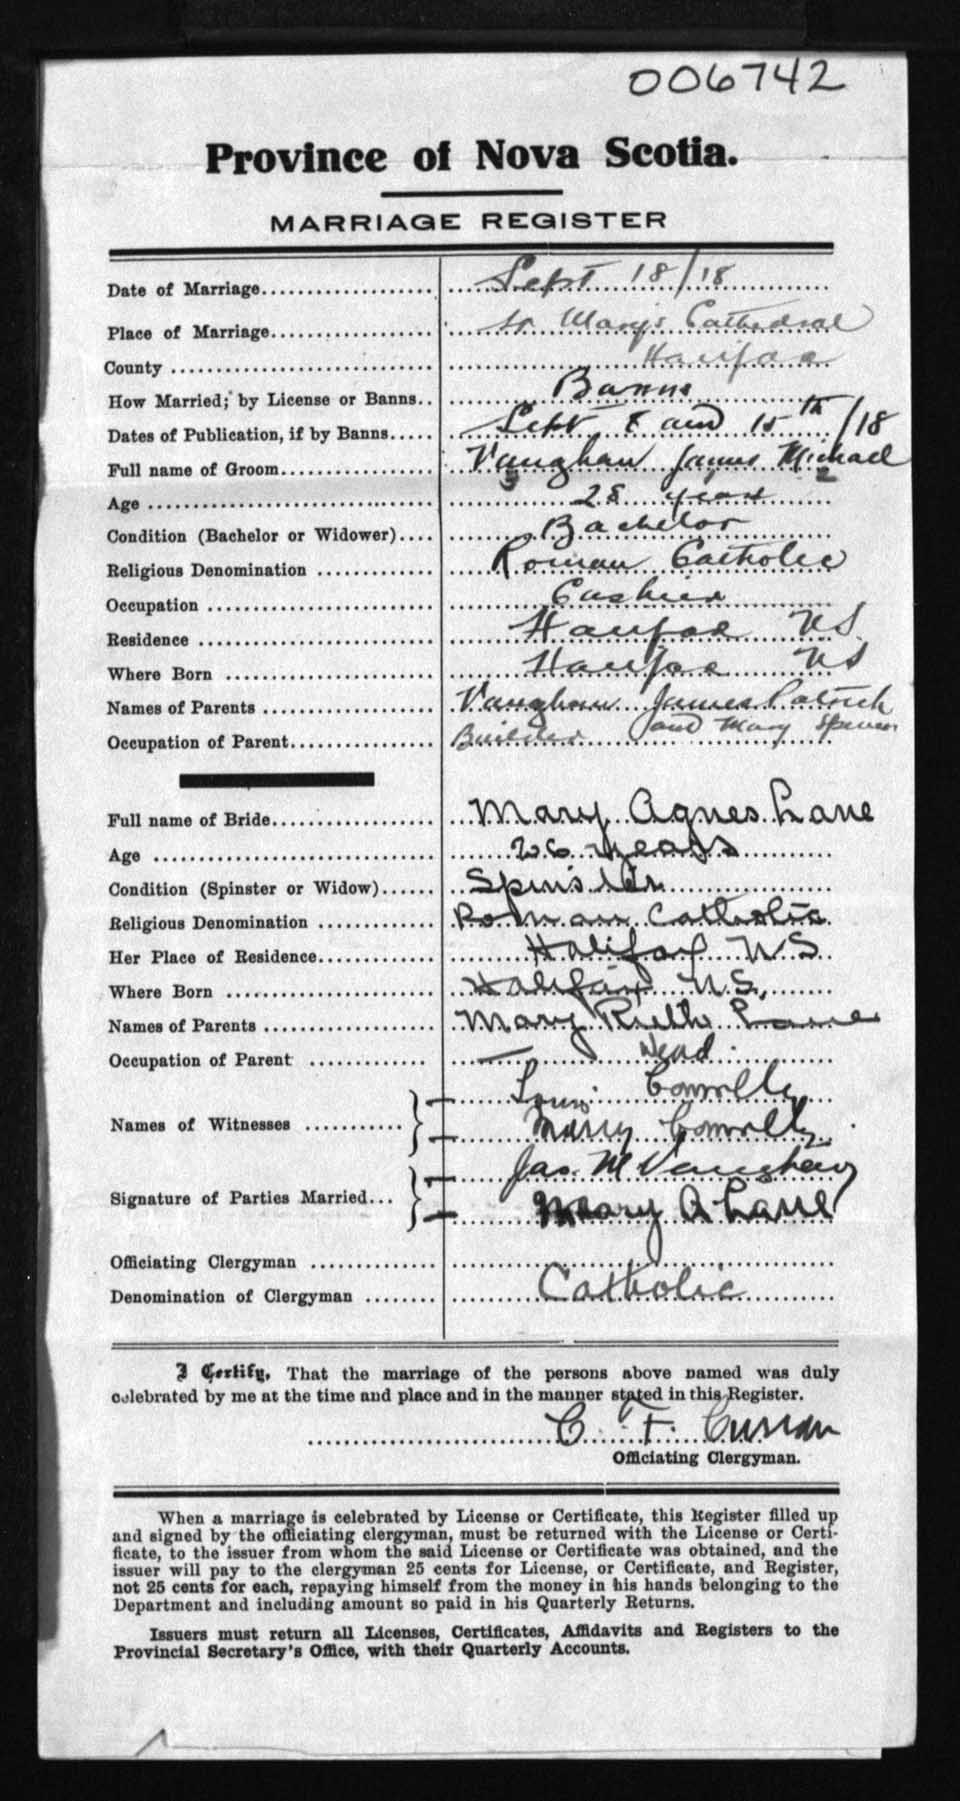 006742
Province of Nova Scotia.
MARRIAGE REGISTER
Date of Marriage.................... Sept 18/18
Place of Marriage................... St Mary's Cathedral
County .............................. Halifax
How Married; by License or Banns.. Banns
Dates of Publication, if by Banns..... Sept 8 and 15th/18
Full name of Groom.................. Vaughan James Michael
Age ................................ 28 years
Condition (Bachelor or Widower).... Bachelor
Religious Denomination .............. Roman Catholic
Occupation .......................... Cashier
Residence ........................... Halifax NS
Where Born ......................... Halifax NS
Names of Parents .................... Vaughan James Patrick
and Mary Spencer
Occupation of Parent................. Builder
Full name of Bride................... Mary Agnes Lane
Age ................................ 26 years
Condition (Spinster or Widow)...... Spinster
Religious Denomination .............. Roman Catholic
Her Place of Residence.............. Halifax NS
Where Born ......................... Halifax N.S.
Names of Parents .................... Mary Ruth Lane
Occupation of Parent .............. — Dead.
Louis Connolly
Names of Witnesses ...........
Mary Connolly
Jas. M Vaughan
Signature of Parties Married...
Mary A Lane
Officiating Clergyman ..............
Denomination of Clergyman ........ Catholic
I Certify, That the marriage of the persons above named was duly
celebrated by me at the time and place and in the manner stated in this Register.
C. F. Curran
Officiating Clergyman.
When a marriage is celebrated by License or Certificate, this Register filled up
and signed by the officiating clergyman, must be returned with the License or Certi-
ficate, to the issuer from whom the said License or Certificate was obtained, and the
issuer will pay to the clergyman 25 cents for License, or Certificate, and Register,
not 25 cents for each, repaying himself from the money in his hands belonging to the
Department and including amount so paid in his Quarterly Returns.
Issuers must return all Licenses, Certificates, Affidavits and Registers to the
Provincial Secretary's Office, with their Quarterly Accounts.